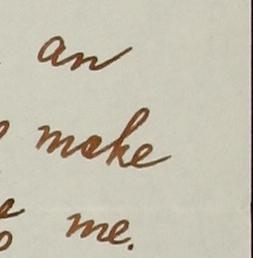 an
make
me.